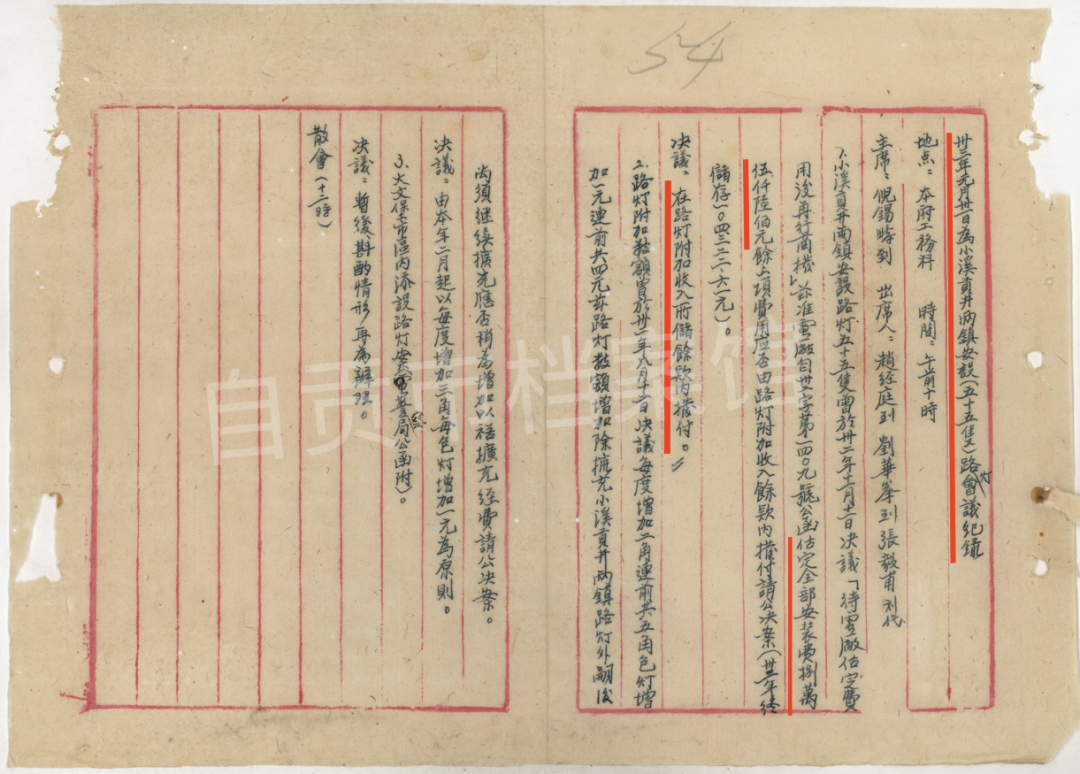 54
卅三年元月卅一日為小溪貢井兩鎮安設(五十五隻)路灯會議紀錄
地点:本府工務科 時間:午前十時
主席:倪錫 到 出席人:趙經庭到 劉華峯到 張毅甫 代
1.小溪貢井兩鎮安設路灯五十五隻曾於卅二年十一月十一日决議「待電廠估定費
用後再行商撥」玆准電廠自業字第一四〇九號公函估定全部安裝費捌萬
伍仟陸佰元餘上項費用應否由路灯附加收入餘款内撥付請公决案(卅二年終
儲存一〇四三二二·六一元)。
决議:在路灯附加收入所儲餘款内撥付。
2.路灯附加数額曾於卅一年八月十一日决議每度增加二角連前共五角包灯增
加一元連前共四元玆路灯数額增加除擴充小溪貢井兩鎮路灯外嗣後
尚須继續擴充應否稍為增加以裕擴充經費請公决案。
决議:由本年二月起以每度增加三角每包灯增加一元為原則。
3.大文保 市區内添設路灯案(電 局公函附)。
决議:暫後斟酌情形再為辦理。
散會(十二時)
自贡市档案馆